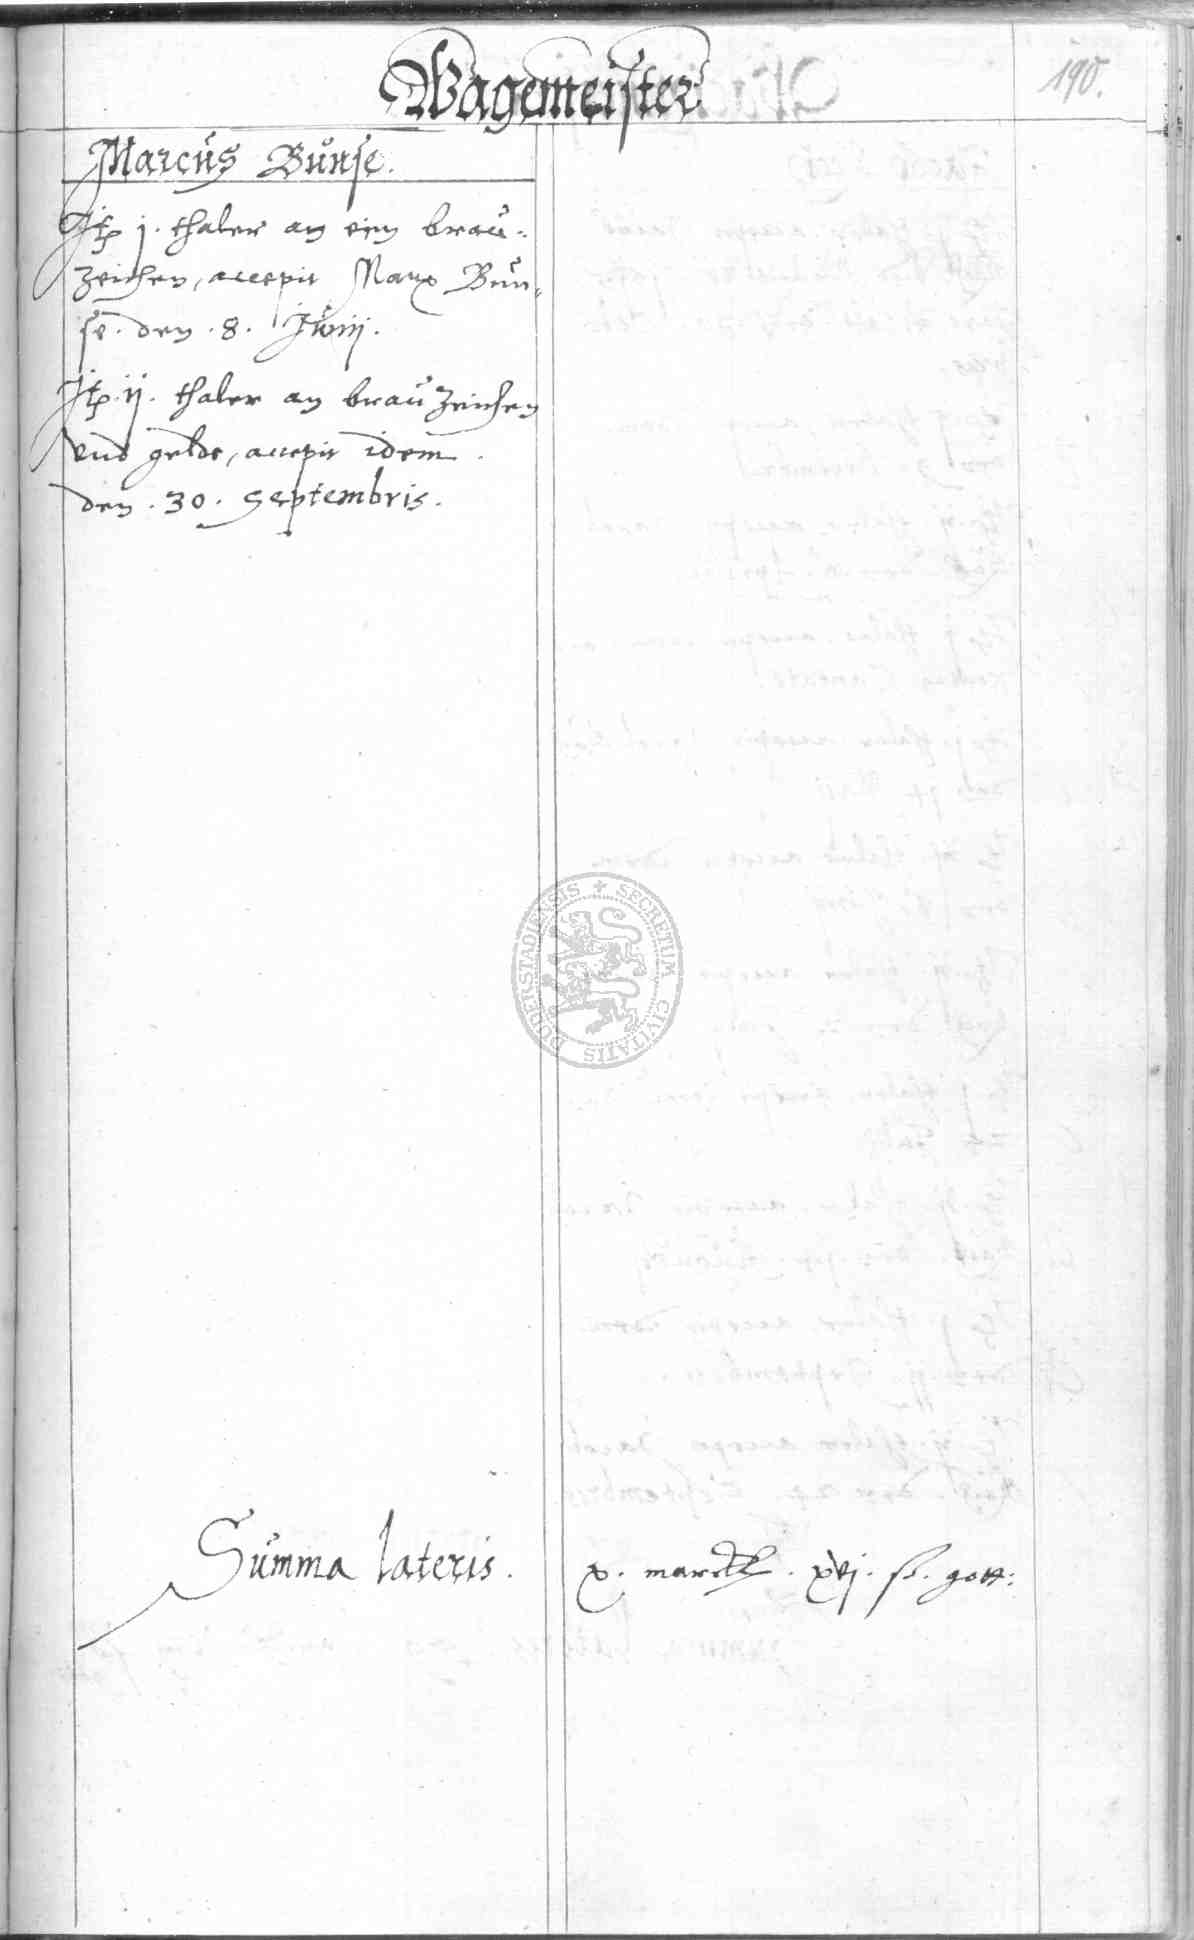 Wagemeister
190.
Marcus Bunse.
Itp j. thaler an ein brau-
zeichen, accepit Marx Bun-
se. den .8. Junij.
Itp. ij. thaler an brauzeichen
vnd gelde, accepit idem.
den .30. Septembris.
SECRETUM CIVITATIS DUDERSTADIENSIS
Summa lateris. x. marck. xvj. ß. gott: